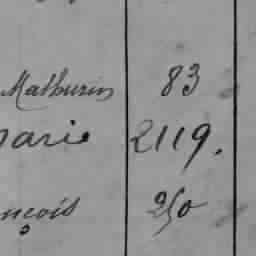 Mathurin 83
marie 2119.
nçois 250